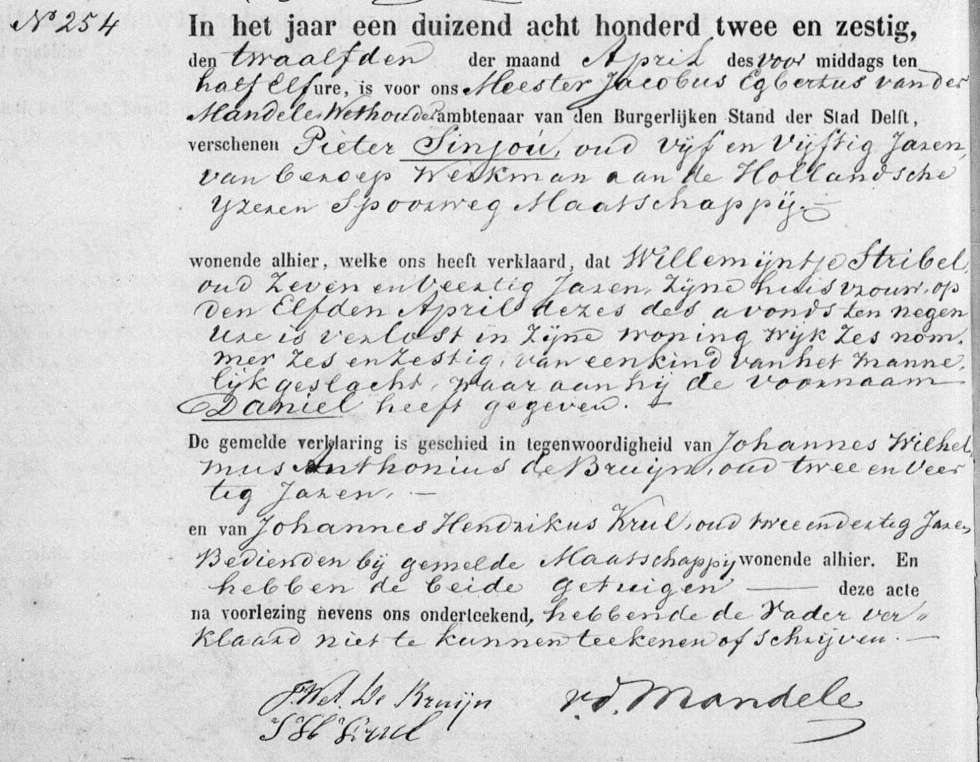 N° 254
In het jaar een duizend acht honderd twee en zestig,
den twaalfden der maand April des voor middags ten
half Elf ure, is voor ons Meester Jacobus Egbertus van der
Mandele Wethouder ambtenaar van den Burgerlijken Stand der Stad Delft,
verschenen Pieter Sinjoú, oud vijf en vijftig Jaren,
van beroep Werkman aan de Hollandsche
Yzeren Spoorweg Maatschappij.
wonende alhier, welke ons heeft verklaard, dat Willemijntje Stribel,
oud Zeven en Veertig Jaren, Zijne huisvrouw, op
den Elfden April dezes des avonds ten negen
Ure is verlost in Zijne woning Wijk Zes nom,
mer Zes en Zestig, van een kind van het manne,
lijk geslacht, waaraan hij de voornaam
Daniel heeft gegeven.
De gemelde verklaring is geschied in tegenwoordigheid van Johannes Wilhel
mus Anthonius de Bruijn, oud twee en Veer
tig Jaren,
en van Johannes Hendrikus Krul, oud twee en dertig Jaren,
Bedienden bij gemelde Maatschappij wonende alhier. En
hebben de beide getuigen deze acte
na voorlezing nevens ons onderteekend, hebbende de Vader ver„
klaard niet te kunnen teekenen of schrijven.
J.W.A. De Bruijn v.d. Mandele
J H Krul